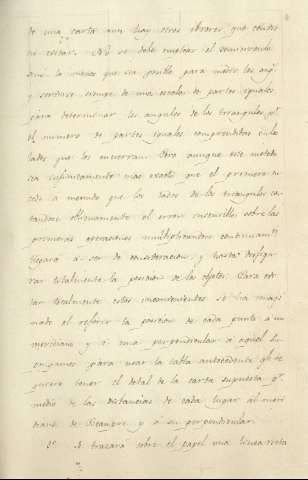 de una carta aun hay otros errores que conviene
evitar. No se debe emplear el semicirculo
sino lo menos que sea posible para medir los ang.s
y servirse siempre de una escala de partes iguales
para determinar los angulos de los triangulos p.r
el numero de partes iguales comprendidas en los
lados que los encierran. Pero aunque este metodo
sea infinitamente mas exacto que el primero su
cede a menudo que los lados de los triangulos es-
tandose el error insensible sobre las
primeras operaciones multiplicandose continuam.te
llegará á ser de consideracion, y hasta desfigu
rar totalmente la posicion de los objetos. Para evi
tar totalmente estos inconvenientes se ha imagi
nado el referir la posicion de cada punto á un
meridiano y á una perpendicular á aquel. Su
pongamos para usar la tabla antecedente q.e se
quiere tener el detal de la carta supuesta p.r
medio de las distancias de cada lugar al meri
diano de y á su perpendicular.
1.o Se trazará sobre el papel una linea recta